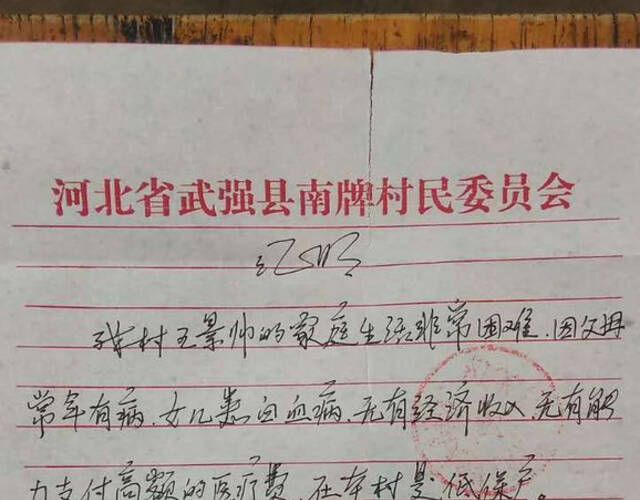 河北省武强县南牌村民委员会
证明
我村王景帅的家庭生活非常困难.因父母
常年有病.女儿患白血病.无有经济收入.无有能
力支付高额的医疗费.在本村是低保户